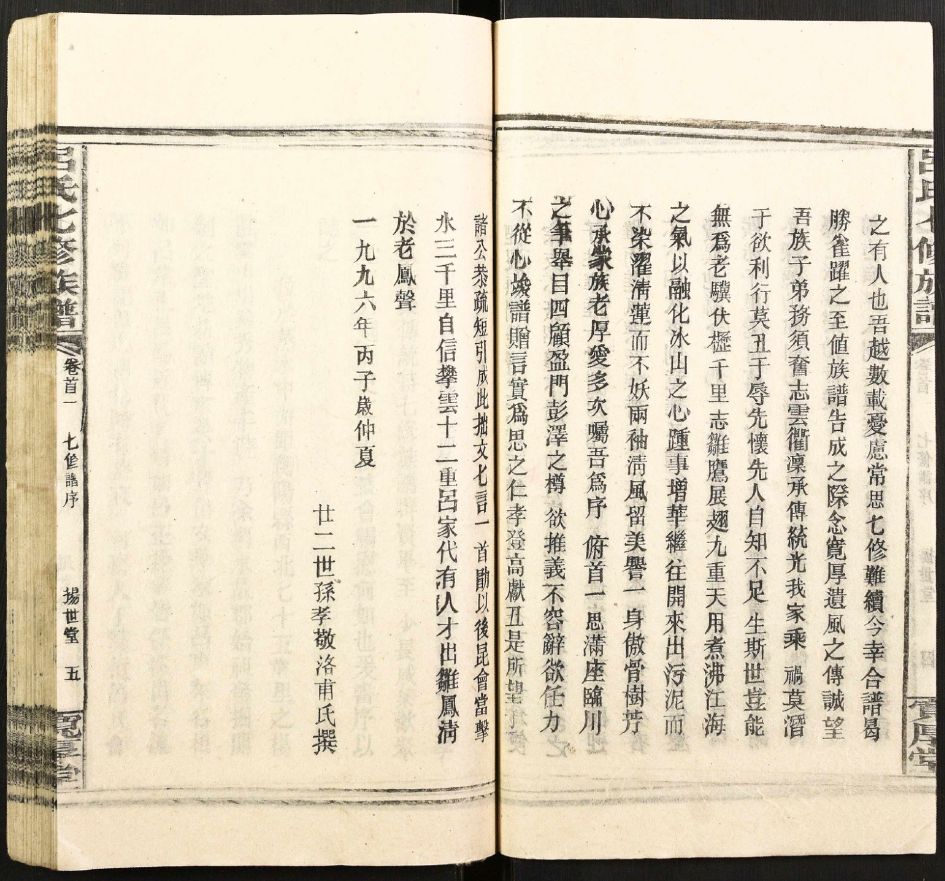 呂氏七修族譜
寬厚堂
之有人也吾越數載憂慮常思七修難續今幸合譜曷
勝雀躍之至值族譜告成之際念寬厚遺風之傳誠望
吾族子弟務須奮志雲衢凜承傳統光我家乘 禍莫潛
于欲利行莫丑于辱先懷先人自知不足生斯世豈能
無爲老驥伏櫪千里志雛鷹展翅九重天用煮沸江海
之氣以融化冰山之心踵事增華繼往開來出污泥而
不染濯淸蓮而不妖兩袖淸風留美譽一身傲骨樹芳
心承蒙族老厚愛多次囑吾爲序 俯首一思滿座臨川
之筆舉目四顧盈門彭澤之樽欲推義不容辭欲任力
不從心竣譜贈言實爲思之仁孝登高獻丑是所望
諸公恭疏短引成此拙文七言一首勵以後昆會當擊
水三千里自信攀雲十二重呂家代有人才出雛鳳淸
於老鳳聲
一九九六年丙子歲仲夏
廿二世孫孝敬洛甫氏撰
呂氏七修族譜
卷首一
七修譜序
揚世堂
五
寬厚堂